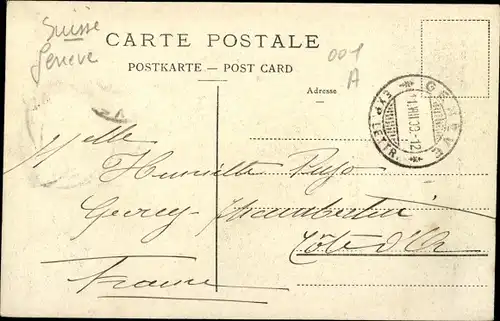 Suisse
Geneve
CARTE POSTALE
POSTKARTE — POST CARD
001
A
Adresse
GENÈVE
EXP. LETTR.
Mlle
Henriette
Gevrey-Chambertin
Côte d'Or
France